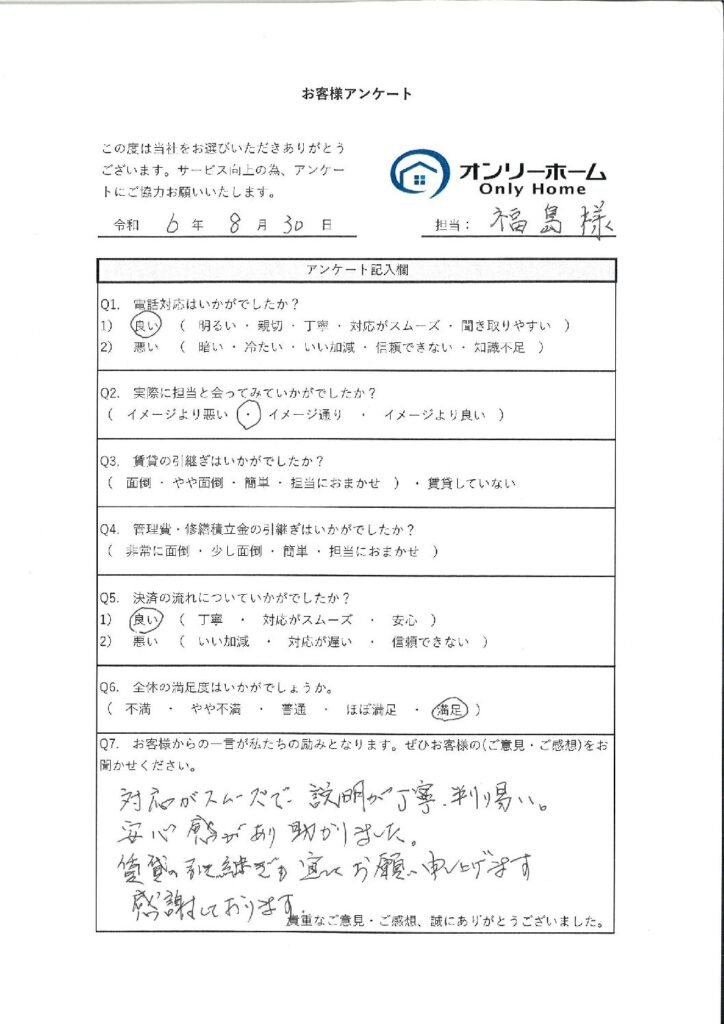 お客様アンケート
この度は当社をお選びいただきありがとう
ございます。サービス向上の為、アンケー
トにご協力お願いいたします。
オンリーホーム
Only Home
令和 6 年 8 月 30 日
担当： 福島様
アンケート記入欄
Q1. 電話対応はいかがでしたか？
1） 良い （ 明るい ・ 親切 ・ 丁寧 ・ 対応がスムーズ ・ 聞き取りやすい ）
2） 悪い （ 暗い ・ 冷たい ・ いい加減 ・ 信頼できない ・ 知識不足 ）
Q2. 実際に担当と会ってみていかがでしたか？
（ イメージより悪い ・ イメージ通り ・ イメージより良い ）
Q3. 賃貸の引継ぎはいかがでしたか？
（ 面倒 ・ やや面倒 ・ 簡単 ・ 担当におまかせ ） ・ 賃貸していない
Q4. 管理費・修繕積立金の引継ぎはいかがでしたか？
（ 非常に面倒 ・ 少し面倒 ・ 簡単 ・ 担当におまかせ ）
Q5. 決済の流れについていかがでしたか？
1） 良い （ 丁寧 ・ 対応がスムーズ ・ 安心 ）
2） 悪い （ いい加減 ・ 対応が遅い ・ 信頼できない ）
Q6. 全体の満足度はいかがでしょうか。
（ 不満 ・ やや不満 ・ 普通 ・ ほぼ満足 ・ 満足 ）
Q7. お客様からの一言が私たちの励みとなります。ぜひお客様の(ご意見・ご感想)をお
聞かせください。
対応がスムーズで 説明が丁寧、判り易い。
安心感があり助かりました。
賃貸の引き継ぎも宜しくお願い申し上げます
感謝しております。
貴重なご意見・ご感想、誠にありがとうございました。